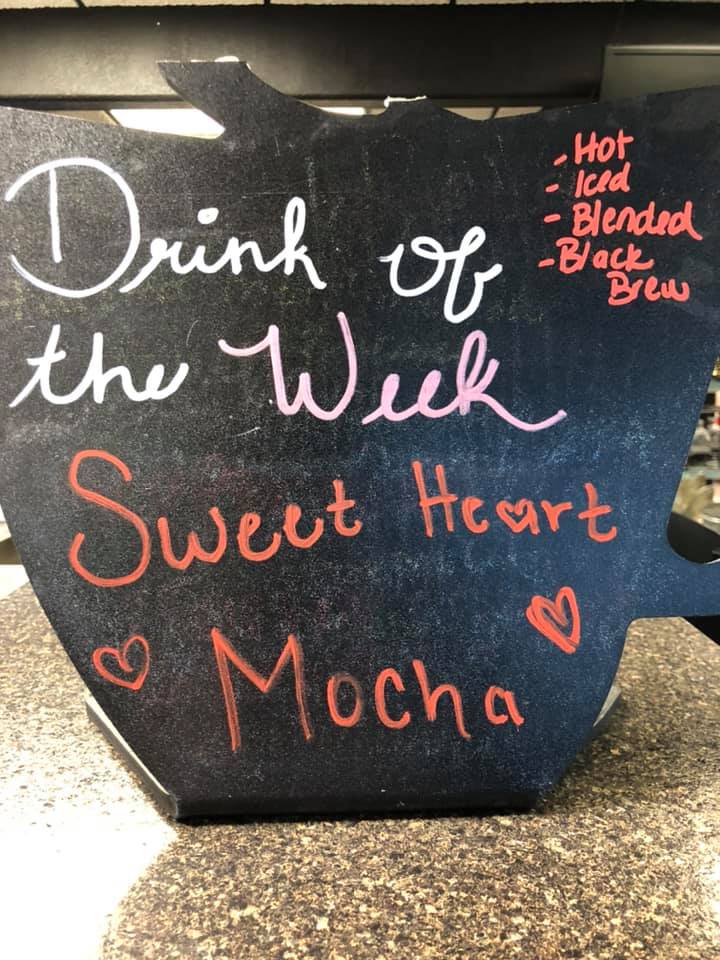 Drink of
the Week
Sweet Heart
Mocha
- Hot
- Iced
- Blended
- Black
Brew